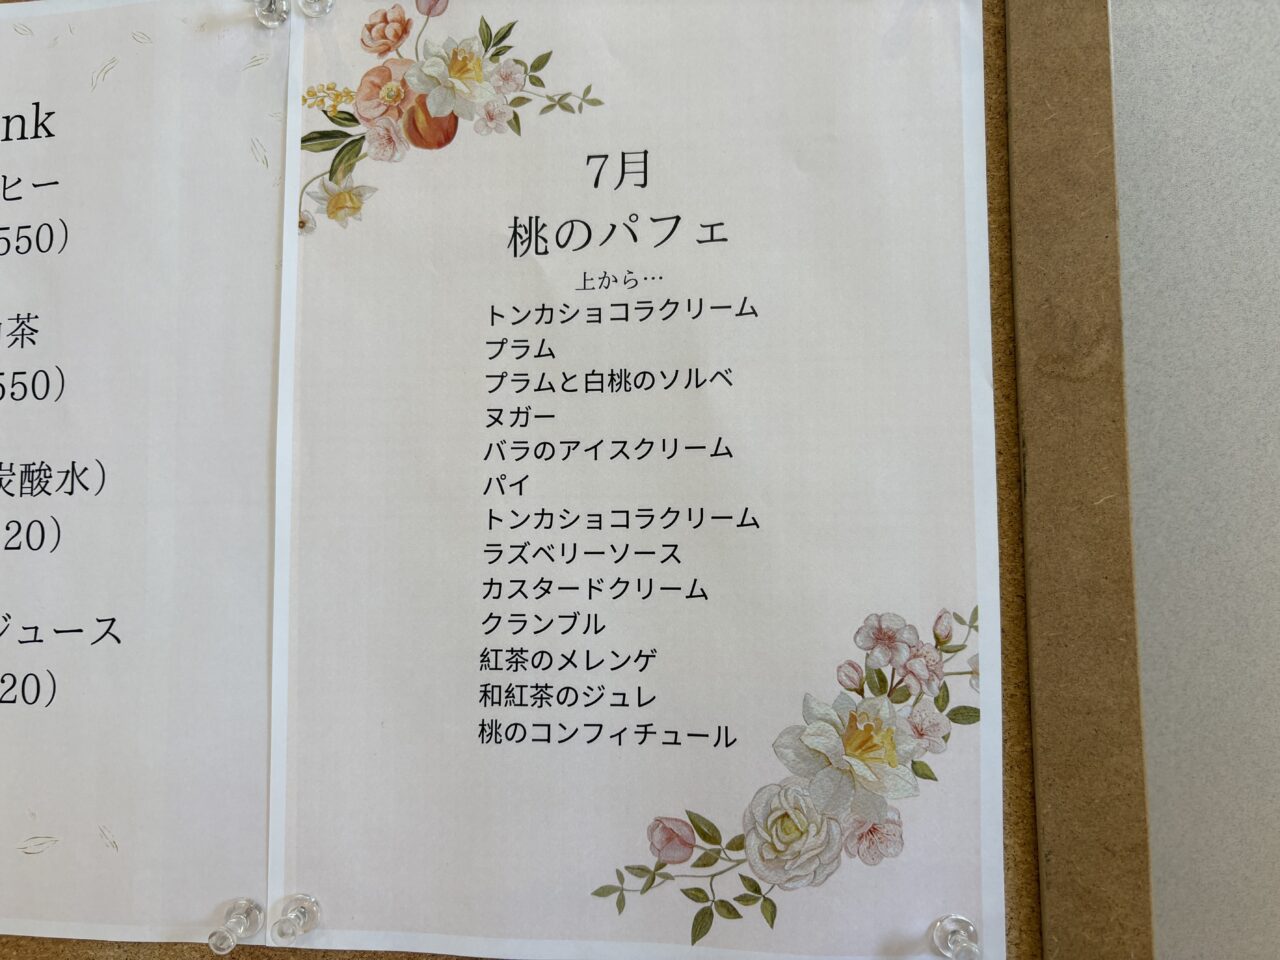 nk
ヒー
550）
茶
550）
炭酸水）
20）
ジュース
20）
7月
桃のパフェ
上から…
トンカショコラクリーム
プラム
プラムと白桃のソルベ
ヌガー
バラのアイスクリーム
パイ
トンカショコラクリーム
ラズベリーソース
カスタードクリーム
クランブル
紅茶のメレンゲ
和紅茶のジュレ
桃のコンフィチュール